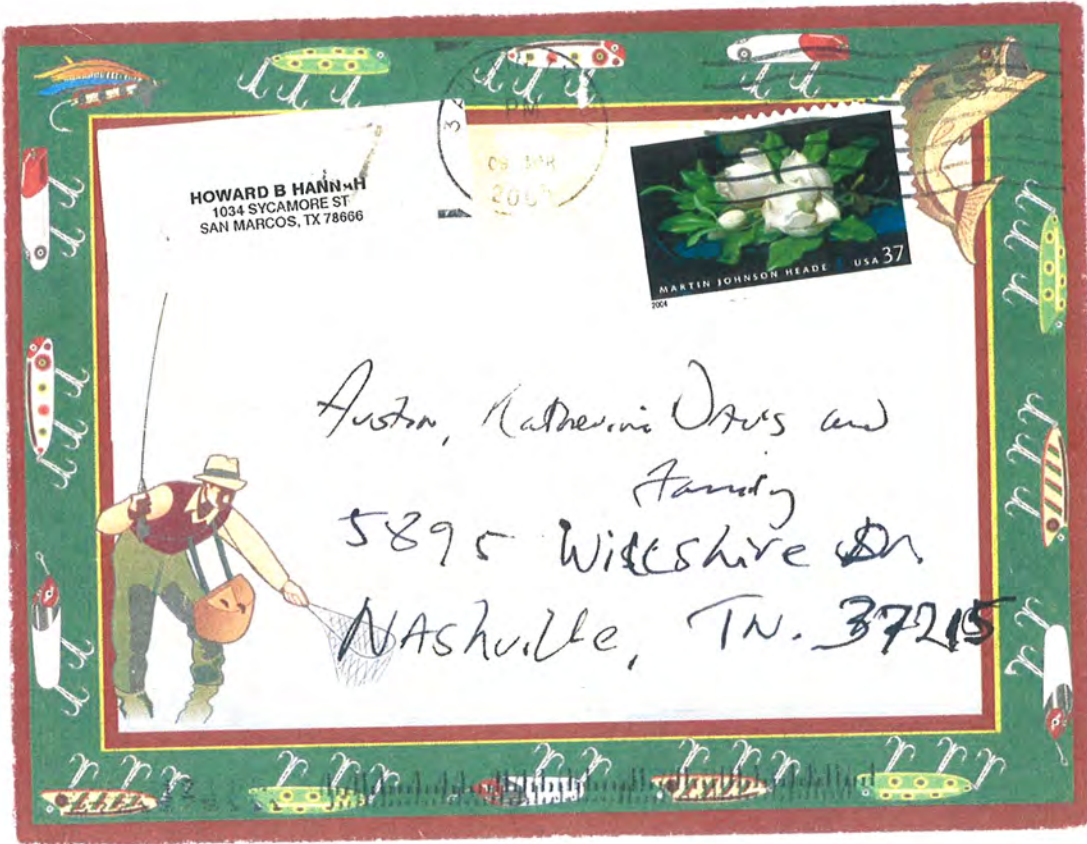 HOWARD B HANNAH
1034 SYCAMORE ST
SAN MARCOS, TX 78666
PM
2005
MARTIN JOHNSON HEADE USA 37
2004
Austin, Katherine Davis and
Family
5895 Willshire Dr.
NAshville, TN. 37215